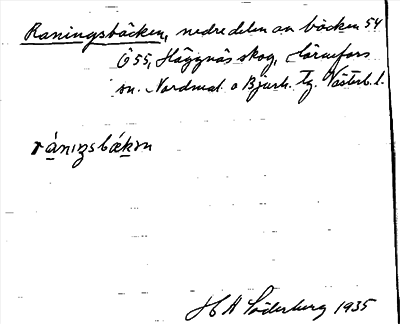 Raningsbäcken, nedre delen av bäcken 54
Ö 55, Häggnäs skog, Hörnefors
sn. Nordmal. o Bjurh. tg. Västerb. l.
ránıŋsbäkɐn
H A Söderberg 1935